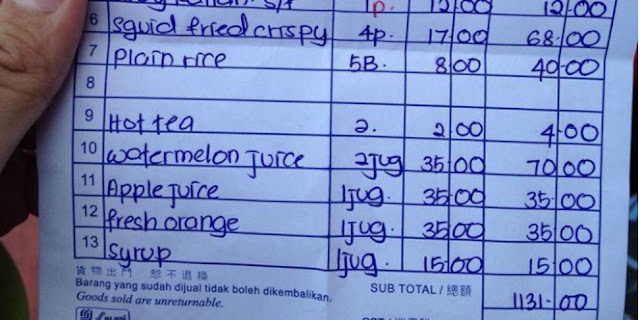 1p. 12.00 12.00
6 squid fried crispy 4p. 17.00 68.00
7 Plain rice 5B. 8.00 40.00
8
9 Hot tea 2. 2.00 4.00
10 watermelon juice 2jug 35.00 70.00
11 Apple juice 1jug. 35.00 35.00
12 fresh orange 1jug. 35.00 35.00
13 syrup 1jug. 15.00 15.00
貨物出門 恕不退換
Barang yang sudah dijual tidak boleh dikembalikan.
Goods sold are unreturnable.
SUB TOTAL / 總額 1131.00